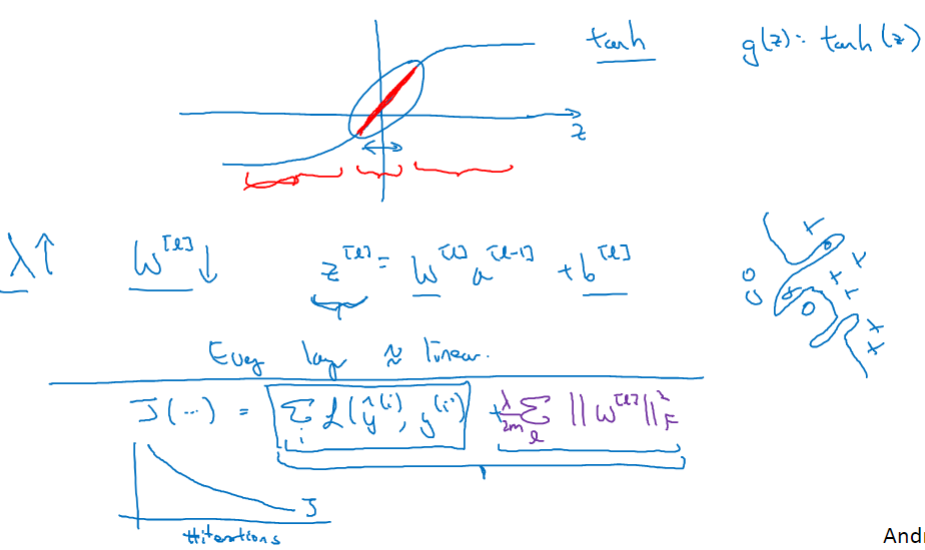 tanh
g(z) = tanh(z)
z
λ↑ W^[l]↓ z^[l] = W^[l] a^[l-1] + b^[l]
Every layer ≈ linear.
J(...) = Σ_i L(ŷ^(i), y^(i)) + λ/2m Σ_l ||W^[l]||²_F
J
#iterations
Andr